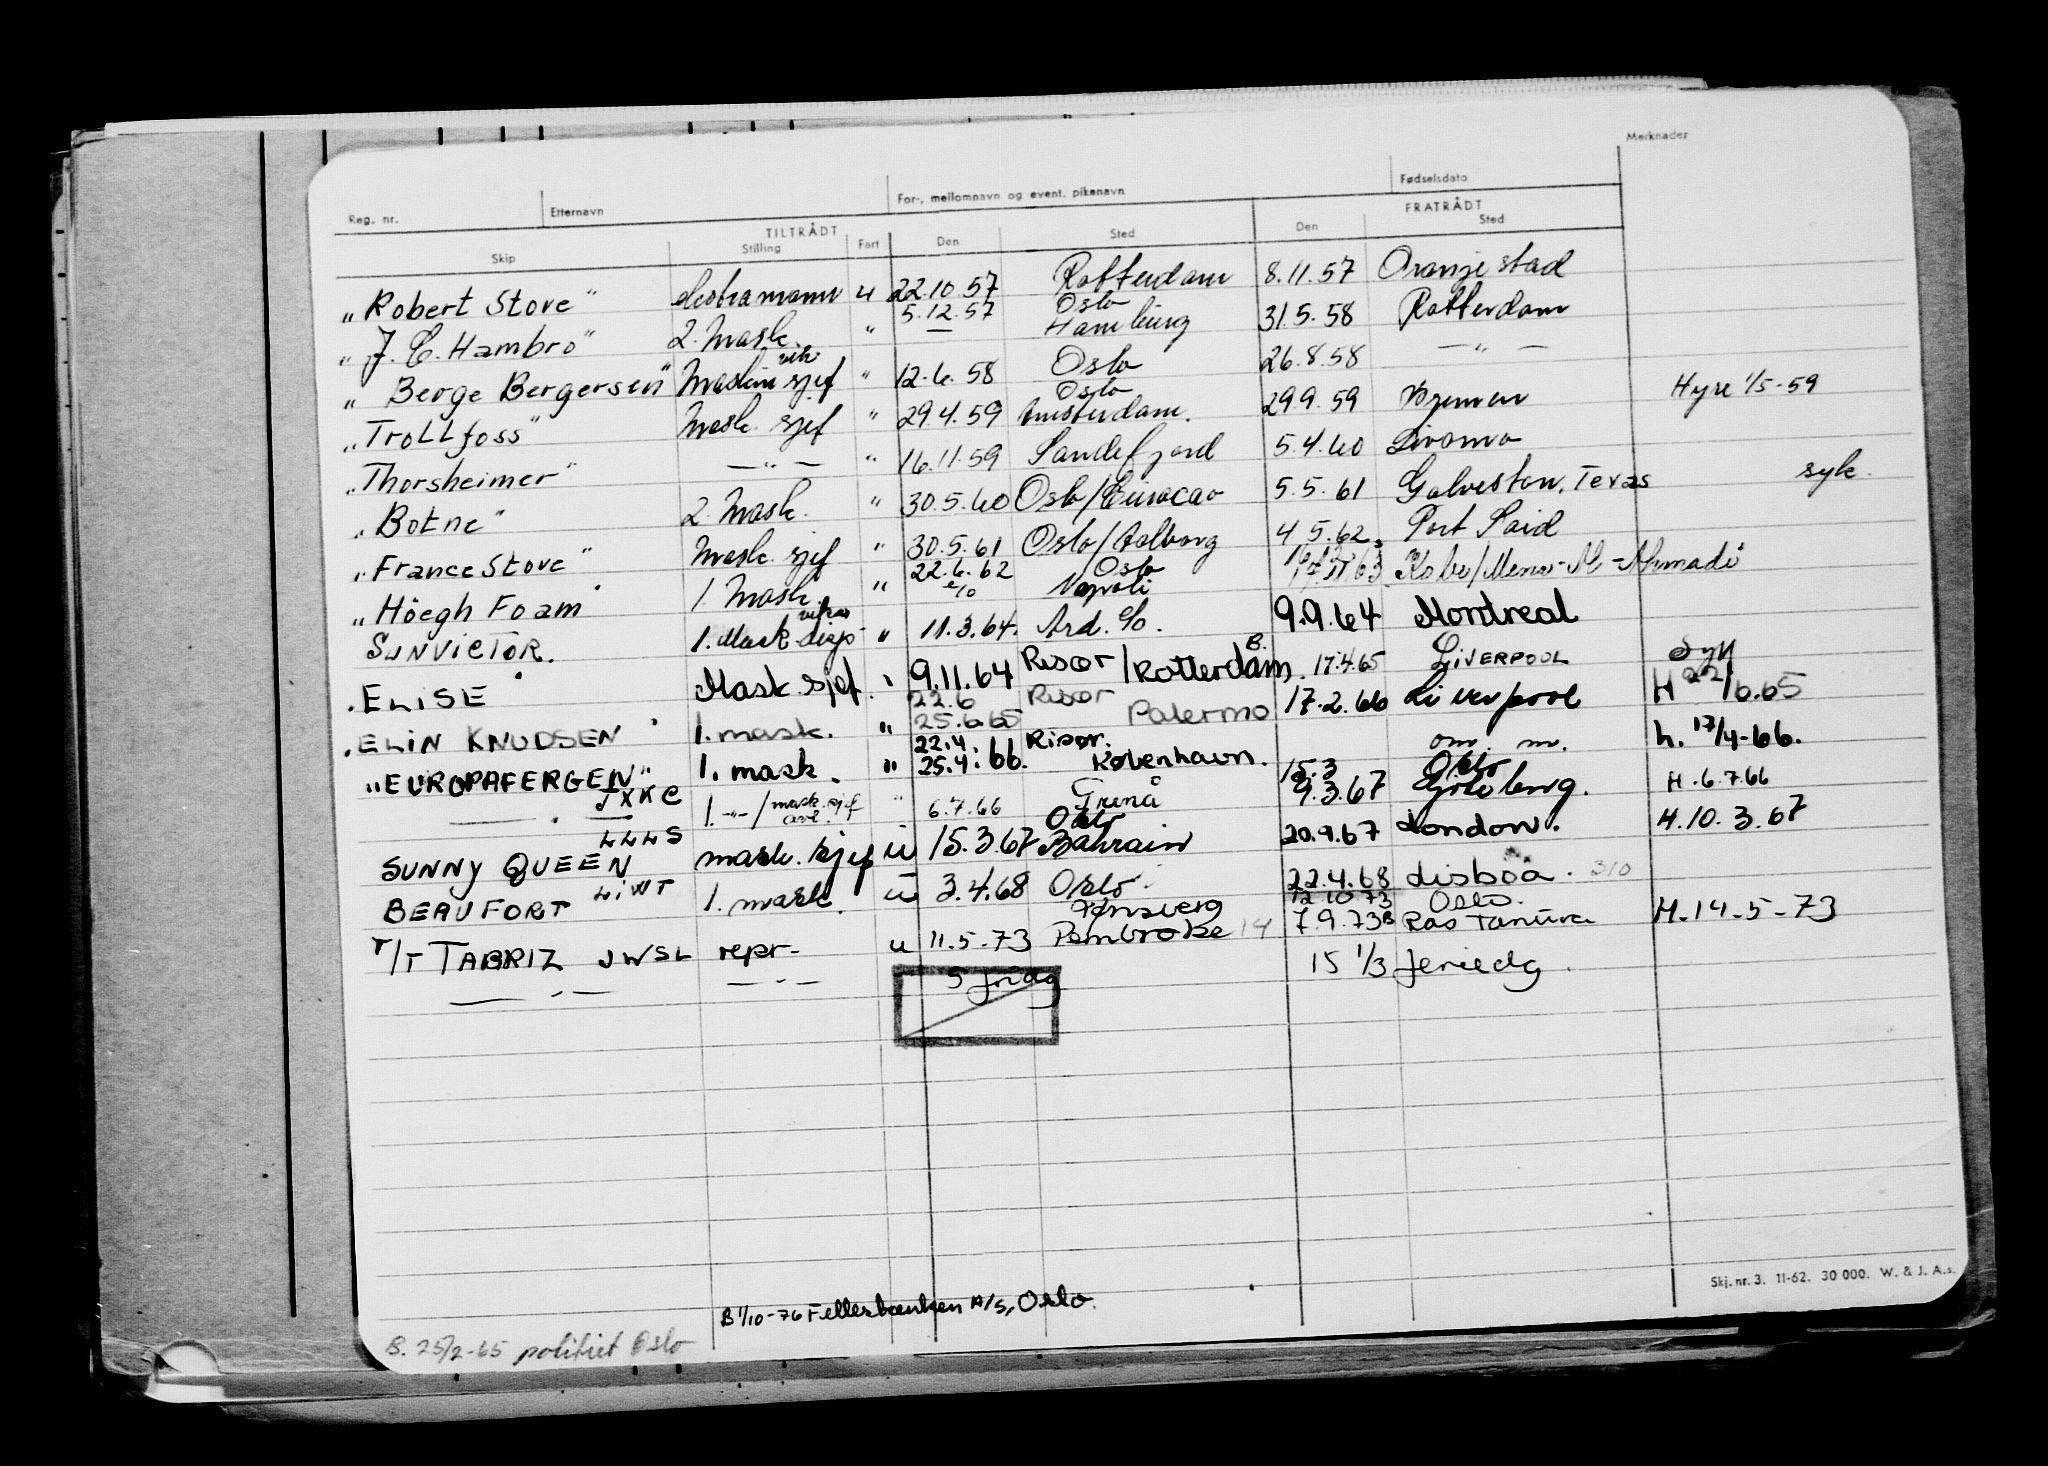 Merknader
Reg. nr. Etternavn For-, mellomnavn og event. pikenavn Fødselsdato
TILTRÅDT FRATRÅDT
Skip Stilling Fart Den Sted Den Sted
"Robert Stove" ekstramann u 22.10.57 Rotterdam 8.11.57 Oranjestad
"J. C. Hambro" 2. Mask. " 5.12.57 Oslo Hamburg 31.5.58 Rotterdam
"Berge Bergersen" Maskinsjef vik. " 12.6.58 Oslo 26.8.58 — " —
"Trollfoss" Mask. sjef " 29.4.59 Oslo Amsterdam. 29.9.59 Bremen Hyre 1/5-59
"Thorsheimer" — " — " 16.11.59 Sandefjord 5.4.60 Livorno
"Botne" 2. Mask. " 30.5.60 Oslo/Curacao 5.5.61 Galveston, Texas syk.
"France Stove" Mask. sjef " 30.5.61 Oslo/Aalborg 4.5.62 Port Said
"Höegh Foam" 1. Mask. " 22.6.62 Oslo Napoli Kobe/Mena-Al-Ahmadi
SUNVICTOR. 1. Mask disp " 11.3.64. Ard. %. 9.9.64 Montreal
"ELISE" Mask. sjef. " 9.11.64 Risør/Rotterdam. B. 17.4.65 LIVERPOOL Syk
"ELIN KNUDSEN" 1. mask. " 22.6 25.6.65 Risør Palermo 17.2.66 Liverpool H 22/6.65
"EUROPAFERGEN" 1. mask. " 22.4. 25.4.66. Risør. København. om. m. h. 17/4-66.
— " — JXKC 1. -"-/mask.sjef avl. " 6.7.66 Grenå 15.3 9.3.67 Oslo Göteborg. H. 6.7.66
SUNNY QUEEN LLLS mask. sjef u 15.3.67 Oslo Bahrain 20.9.67 London. H. 10.3.67
BEAUFORT LIWT 1. mask. u 3.4.68 Oslo 22.4.68 Lisboa. 310
T/T TABRIZ JWSL repr- u 11.5-73 Tønsberg Pembroke 14 12.10.73 7.9.73B Oslo. Ras Tanura H.14-5-73
— " — — " — 5 fridg 15 1/3 feriedg.
Skj. nr. 3. 11-62. 30 000. W. & J. A.s.
B 1/10-76 Fellesbanken A/S, Oslo.
B. 25/2-65 politiet Oslo